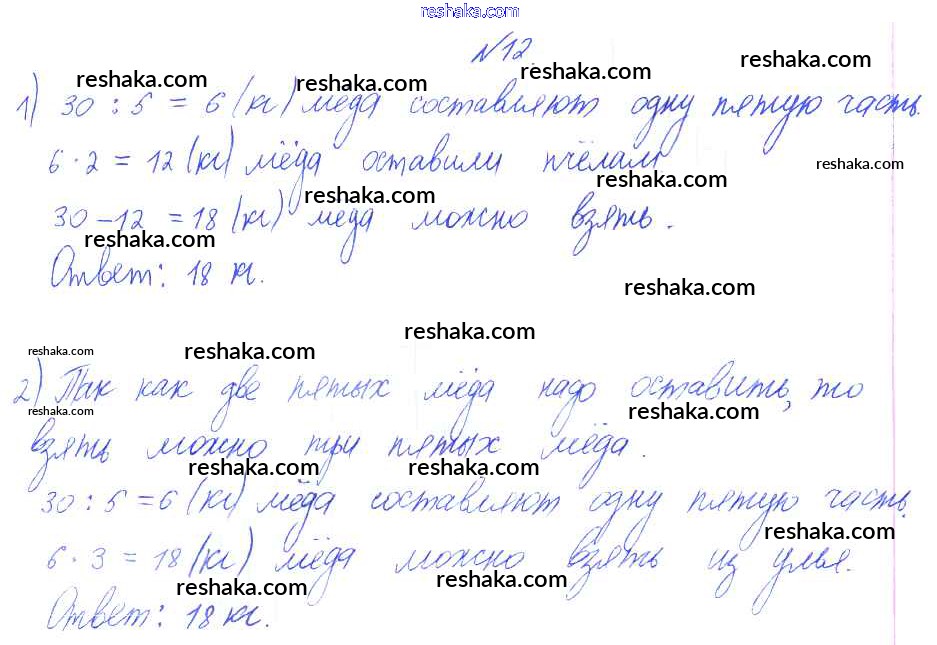 reshaka.com
№12.
reshaka.com reshaka.com reshaka.com
1) 30 : 5 = 6 (кг) мёда составляют одну пятую часть.
6 · 2 = 12 (кг) мёда оставили пчёлам
reshaka.com reshaka.com reshaka.com
30 - 12 = 18 (кг) мёда можно взять.
reshaka.com
Ответ: 18 кг.
reshaka.com
reshaka.com
reshaka.com reshaka.com
2) Так как две пятых мёда надо оставить, то
reshaka.com reshaka.com
взять можно три пятых мёда.
reshaka.com reshaka.com
30 : 5 = 6 (кг) мёда составляют одну пятую часть.
reshaka.com
6 · 3 = 18 (кг) мёда можно взять из улья.
reshaka.com reshaka.com
Ответ: 18 кг.